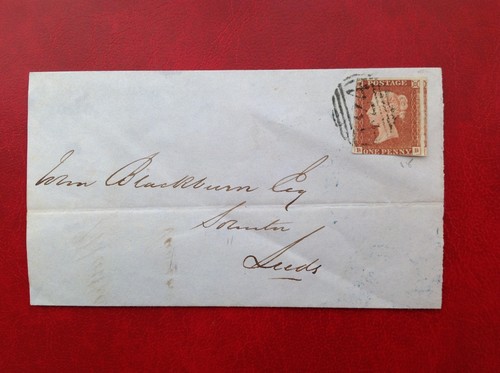 POSTAGE
ONE PENNY
Wm Blackburn Esq
Solicitor
Leeds